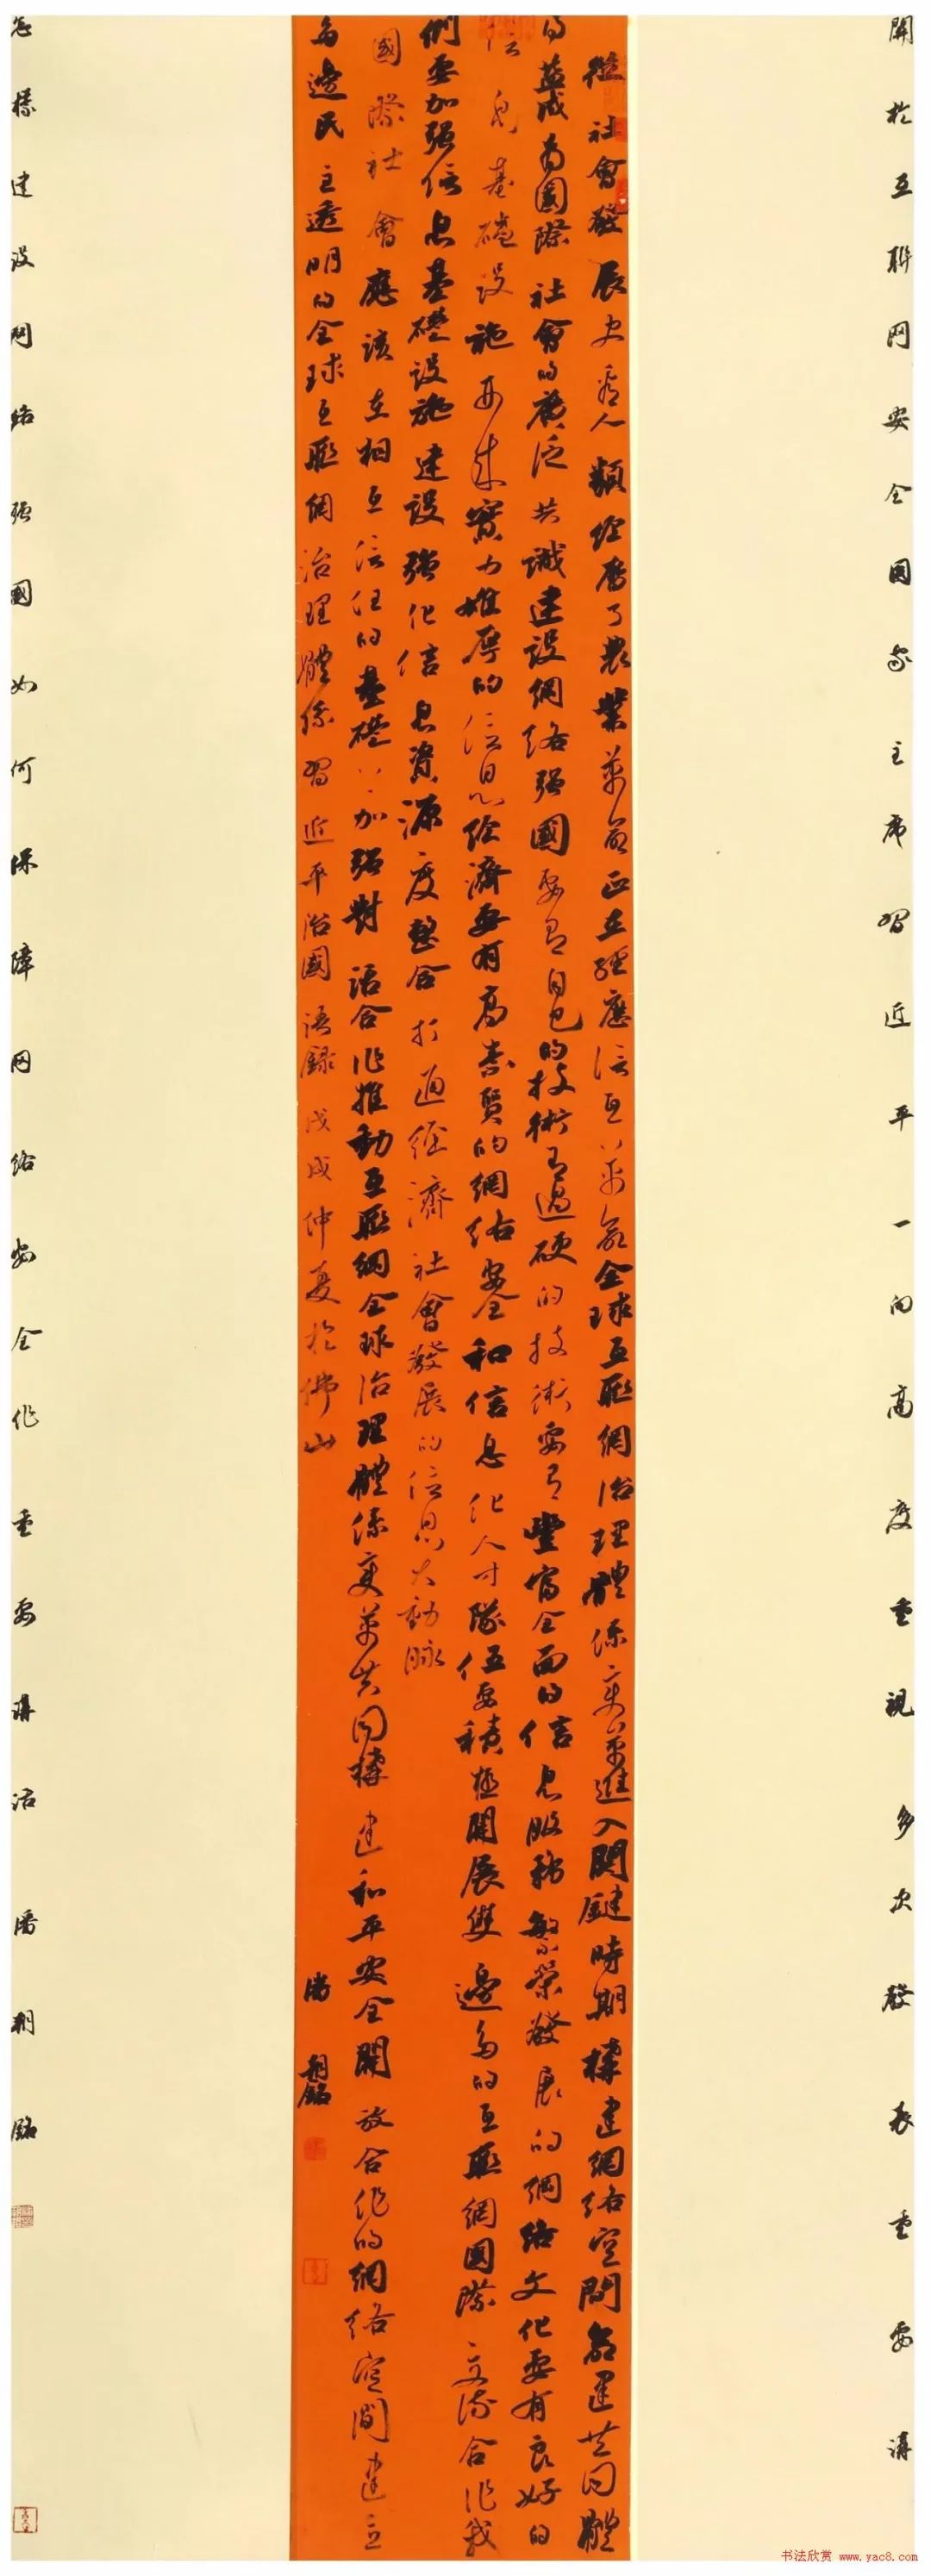 關於互聯网安全國家主席習近平一向高度重視多次發表重要講
從社會發展史看人類經歷了農業革命正在經歷信息革命全球互聯網治理體係變革進入關鍵時期構建網絡空間命運共同體
日益成为國際社會的廣泛共識建設網絡强國要有自己的技術有過硬的技術要有豐富全面的信息服務繁榮發展的網络文化要有良好的
信息基礎設施形成實力雄厚的信息經濟要有高素質的網絡安全和信息化人才隊伍要積極開展雙邊多的互聯網國際交流合作我
們要加强信息基礎設施建設強化信息資源度整合打通經濟社會發展的信息大動脉
國際社會應該在相互信任的基礎上加强對話合作推動互聯網全球治理體係變革共同構建和平安全開放合作的網络空間建立
多邊民主透明的全球互聯網治理體係習近平治國语録戊戌仲夏於佛山
潘朝銘
怎樣建设网络强國如何保障网络安全作重要講话潘朝銘
书法欣赏 www.yac8.com